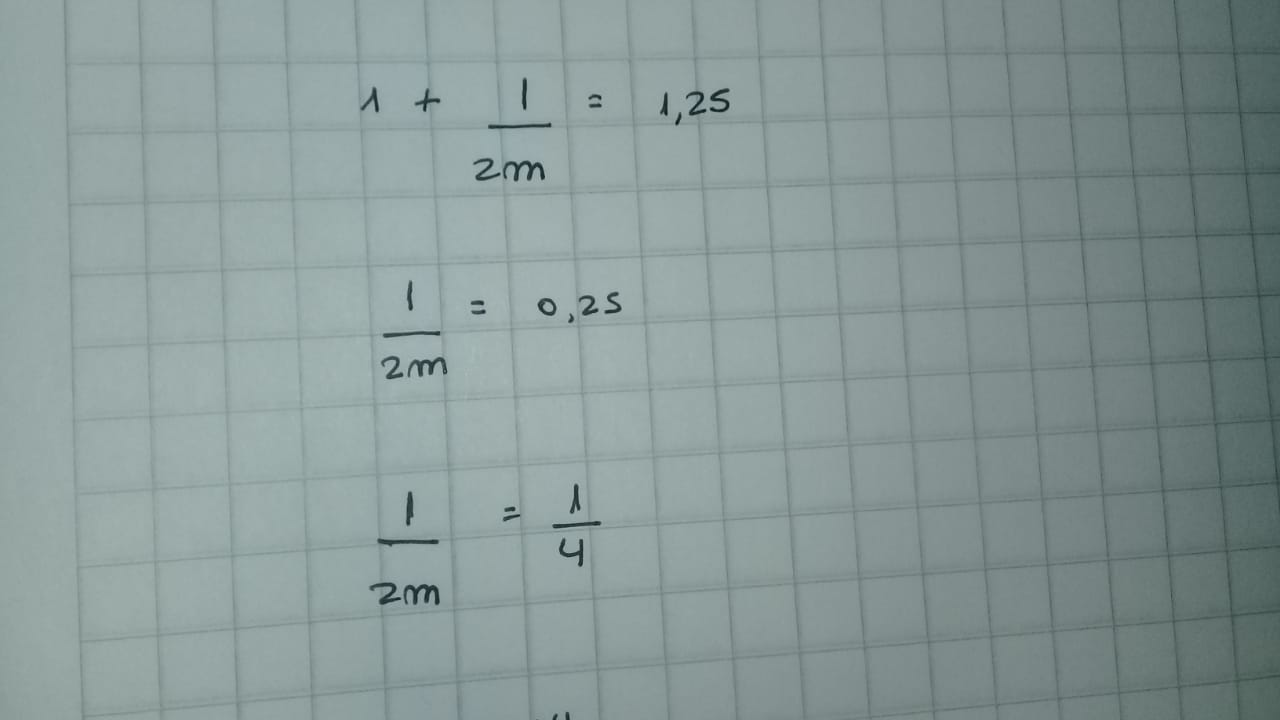 1 + 1/2m = 1,25
1/2m = 0,25
1/2m = 1/4